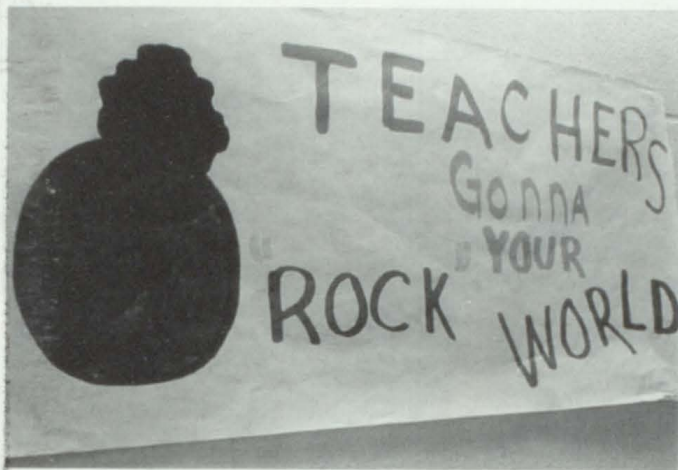 TEACHERS
GONNA
"ROCK" YOUR
WORLD